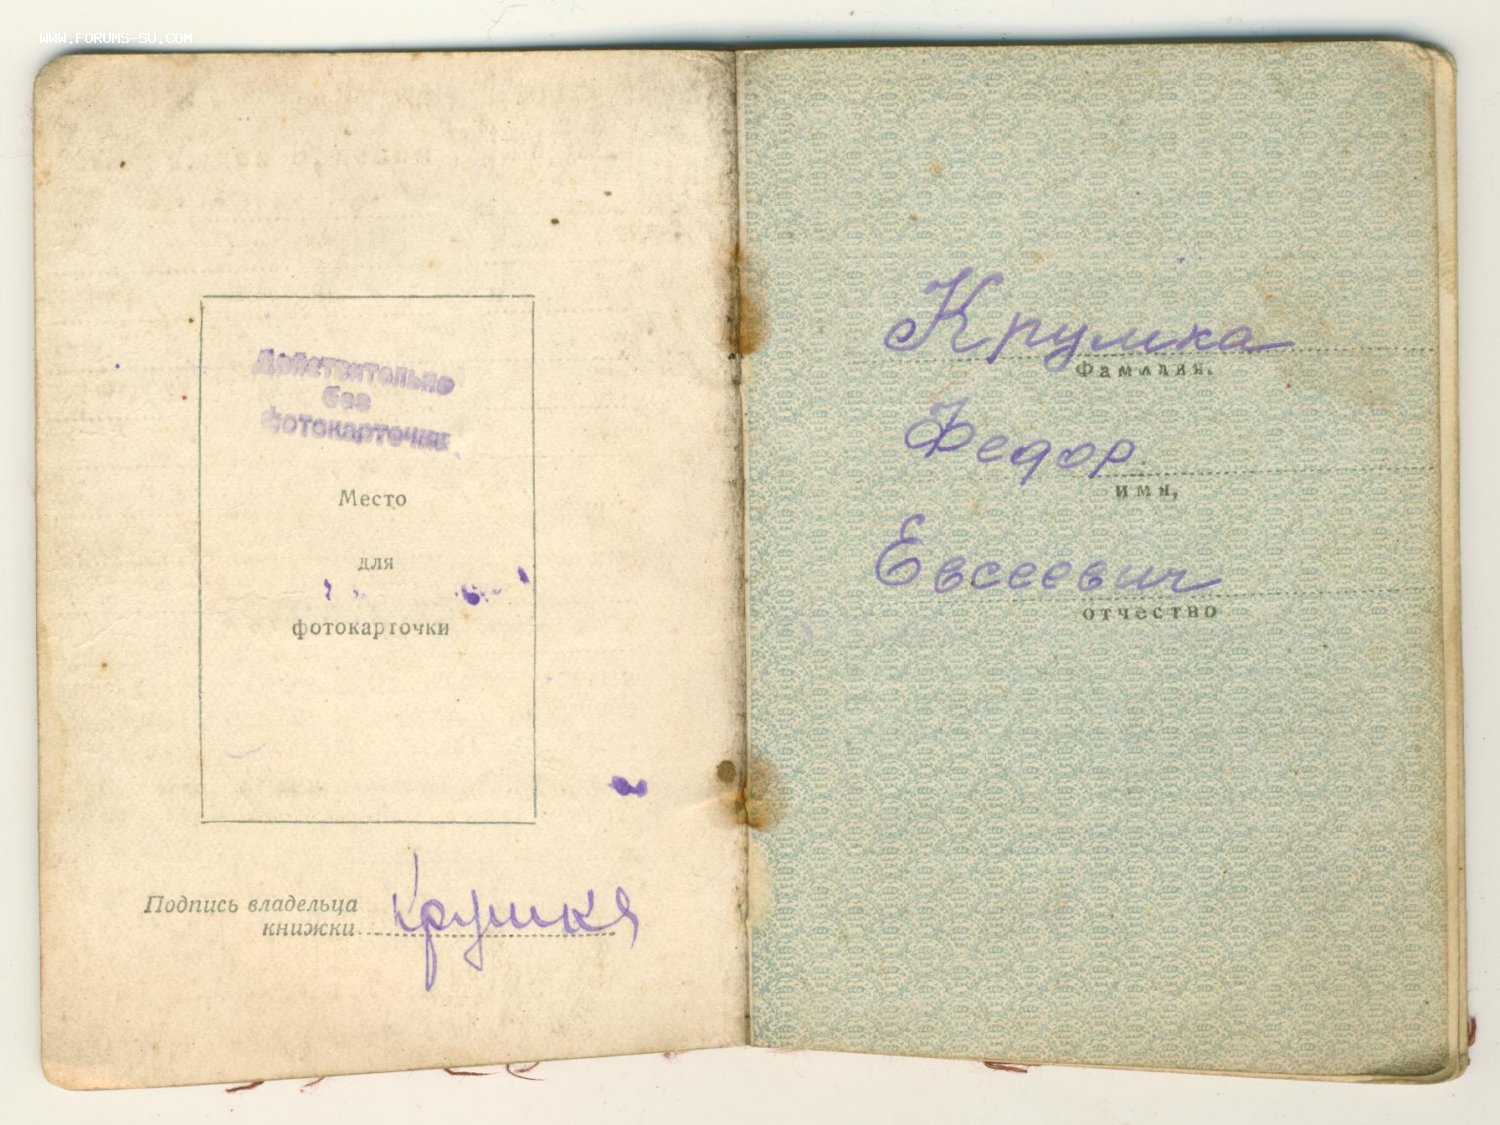 WWW.FORUMS-SU.COM
Действительно
без
фотокарточки
Место
для
фотокарточки
Подпись владельца
книжки
Крумка
Крумка
Фамилия,
Федор
имя,
Евсеевич
отчество